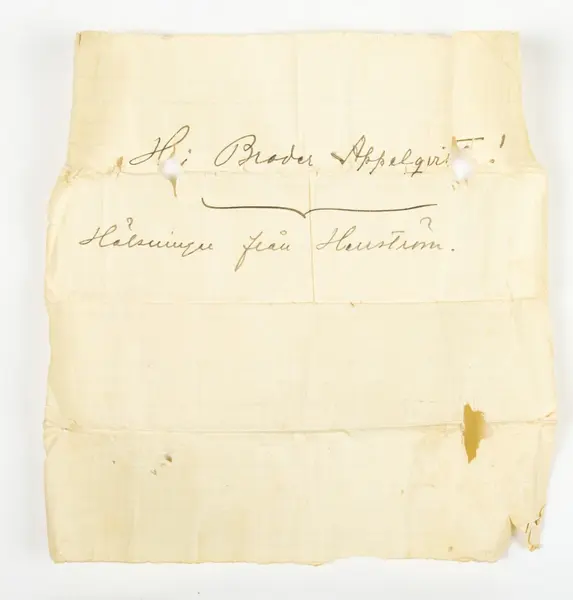 Hi Broder Appelqvist!
Hälsningar från Henström.